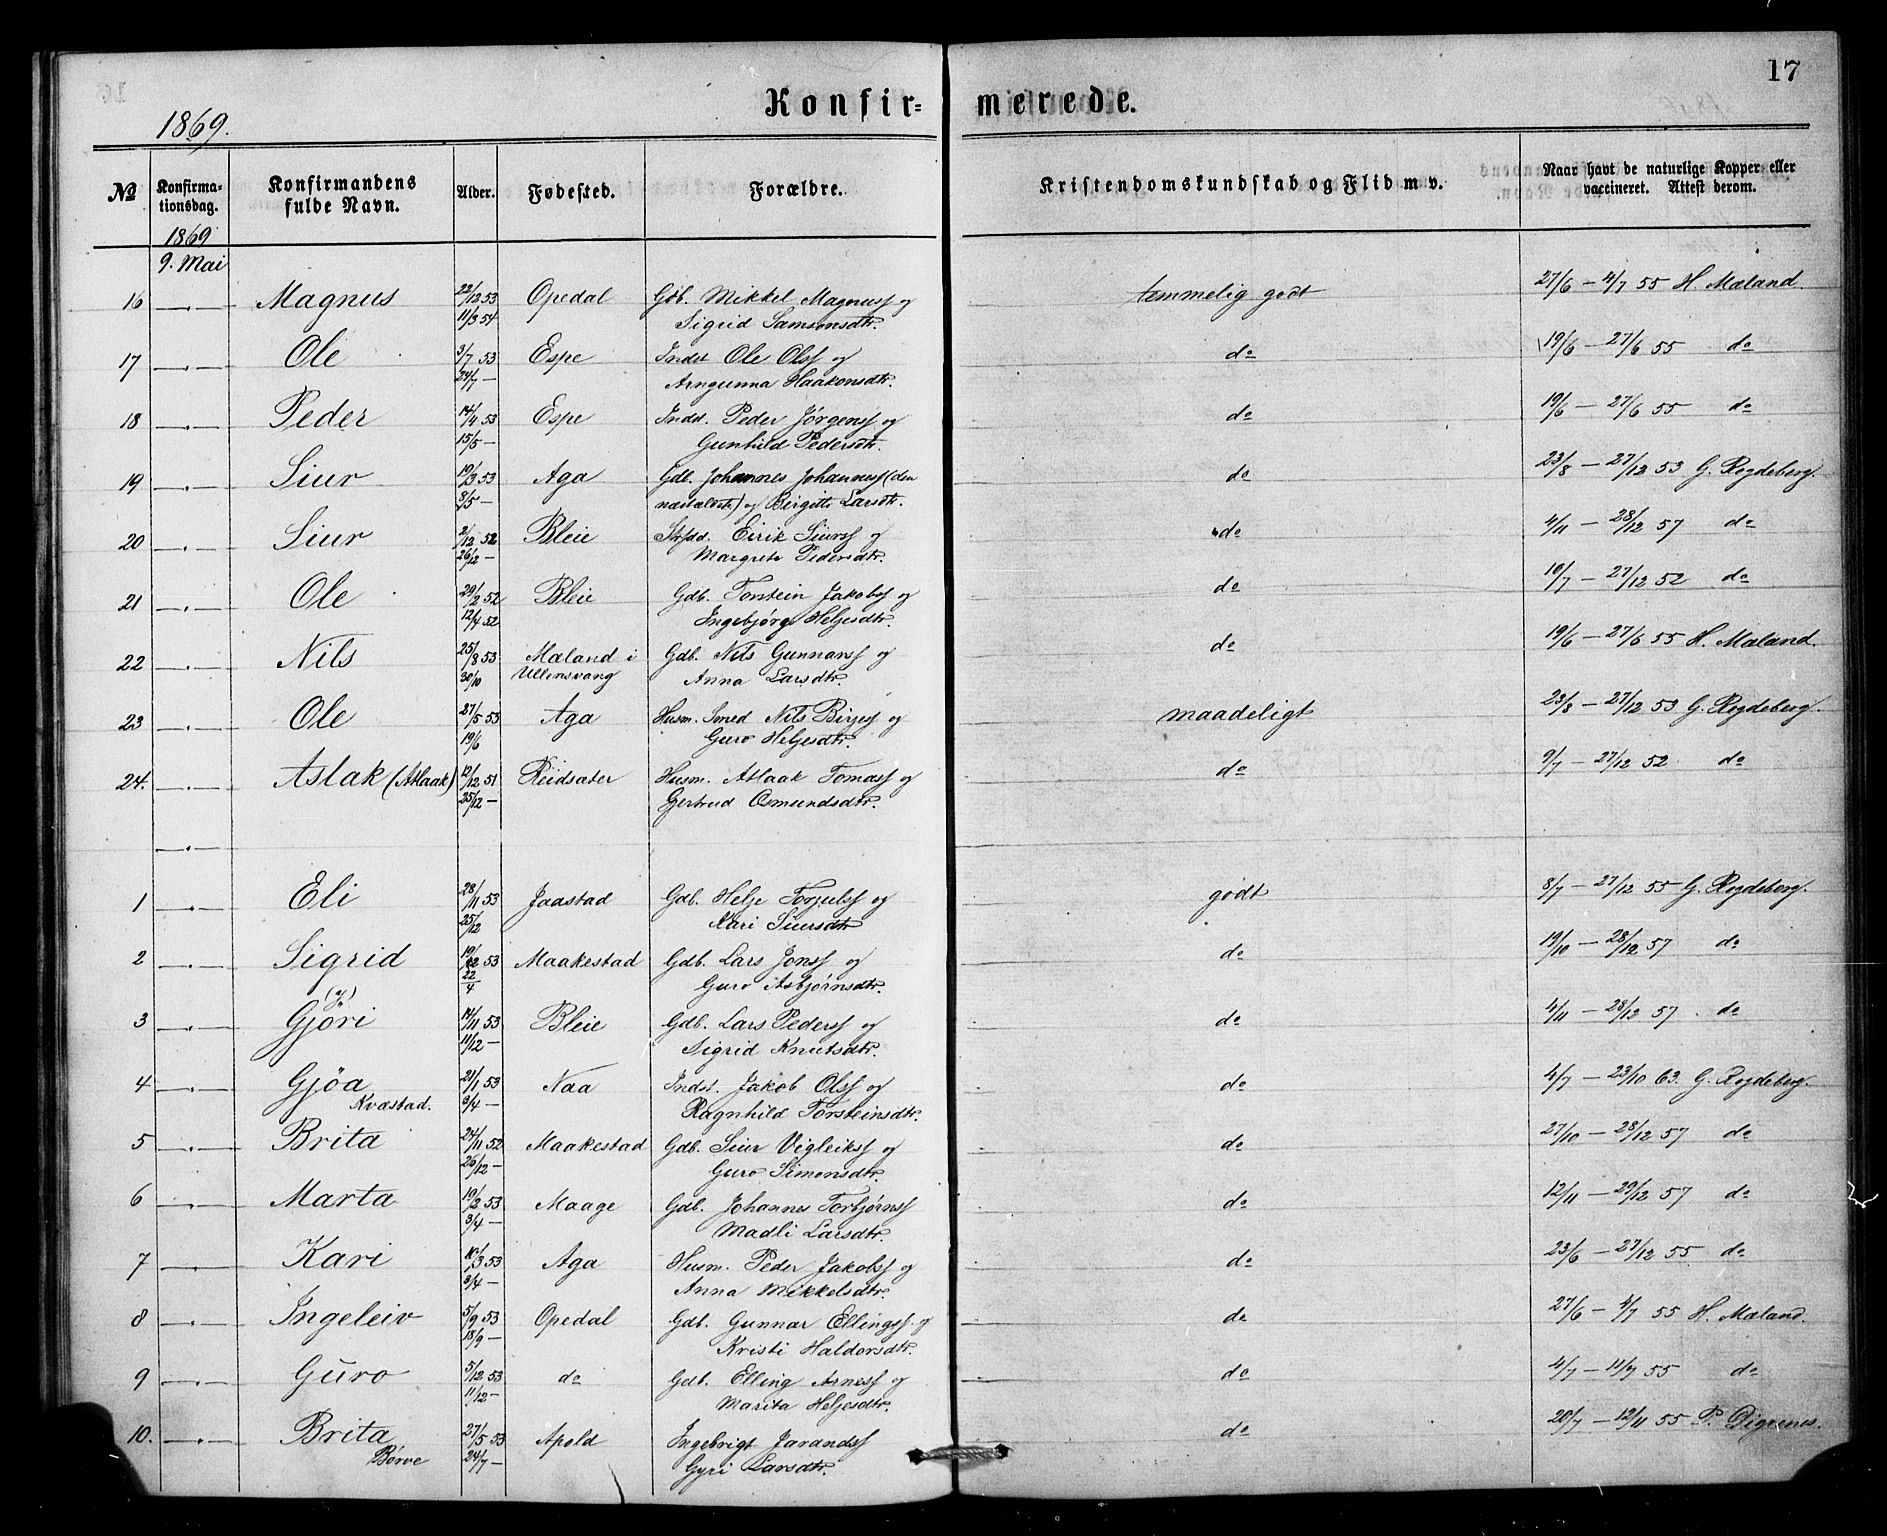 17
1869.
Konfir- merede.
No
Konfirma-
tionsdag.
Konfirmandens
fulde Navn.
Alder.
Fødested.
Forældre.
Kristendomskundskab og Flid m v.
Naar havt de naturlige Kopper eller
vaccineret. Attest derom.
1869
9. Mai
16 —„— Magnus 22/12 53 Opedal Gdb. Mikkel Magnuss og temmelig godt 27/6 — 4/7 55 H. Mæland.
11/3 54 Sigrid Samsonsdtr.
17 —„— Ole 3/7 53 Espe Indst Ole Olss og do 19/6 — 27/6 55 do
24/7 — Arngunna Haakonsdtr.
18 —„— Peder 14/4 53 Espe Indst. Peder Jørgenss og do 19/6 — 27/6 55 do
15/5 — Gunhild Pedersdtr.
19 —„— Siur 19/3 53 Aga Gdb. Johannes Johanness (den do 23/8 — 27/12 53 G. Rogdeberg.
8/5 — næstældste) og Birgitte Larsdtr.
20 —„— Siur 2/12 52 Bleie Eirik Siurss og do 4/11 — 28/12 57 do
26/12 — Margrete Pedersdtr.
21 —„— Ole 29/2 52 Bleie Gdb. Torstein Jakobss og do 10/7 — 27/12 52 do
12/4 52 Ingebjørg Heljesdtr.
22 —„— Nils 25/8 53 Mæland i Gdb. Nils Gunnarss og do 19/6 — 27/6 55 H. Mæland.
30/10 Ullensvang Anna Larsdtr.
23 —„— Ole 27/5 53 Aga Husm. Smed Nils Birjes og maadeligt 23/8 — 27/12 53 G. Rogdeberg.
19/6 Guro Heljesdtr.
24. —„— Aslak (Atlaak) 12/12 51 Reidsæter Husm. Atlaak Tomass og do 9/7 — 27/12 52 do
25/12 — Gertrud Osmundsdtr.
—„—
1 —„— Eli 28/11 53 Jaastad Gdb. Helje Torjulss og godt 8/7 — 27/12 55 G. Rogdeberg.
25/12 Kari Siursdtr
2 —„— Sigrid 53 Maakestad Gdb. Lars Jonss og do 19/10 — 28/12 57 do
22/4 Guro Asbjørnsdtr.
(y)
3 —„— Gjøri 14/11 53 Bleie Gdb. Lars Pederss og do 4/11 — 28/12 57 do
11/12 — Sigrid Knutsdtr.
4 —„— Gjøa 21/1 53 Naa Indst. Jakob Olss og do 4/7 — 23/10 63. G. Rogdeberg.
Kvæstad. 3/4 — Ragnhild Torsteinsdtr.
5 —„— Brita 24/11 52 Maakestad Gdb. Siur Vigleikss og do 27/10 — 28/12 57 do
26/12 — Guro Simonsdtr.
6 —„— Marta 19/2 53 Maage Gdb. Johannes Torbjørnss do 12/11 — 29/12 57 do
3/4 — Madli Larsdtr.
7 —„— Kari 10/3 53 Aga Husm. Peder Jakobss og do 23/6 — 27/12 55 do
3/4 — Anna Mikkelsdtr.
8 —„— Ingeleiv 5/9 53 Opedal Gdb. Gunnar Ellingss. og do 27/6 — 4/7 55 H. Mæland.
18/9 — Kristi Haldorsdtr.
9 —„— Guro 5/12 53 do Gdb. Elling Arness og do 4/7 — 11/7 55 do
11/12 — Marita Heljesdtr.
10. —„— Brita 27/5 53 Apold Ingebrigt Jarandss do 20/7 — 12/11 55 P. Digrenes.
Børve 24/7 — Gyri Larsdtr.